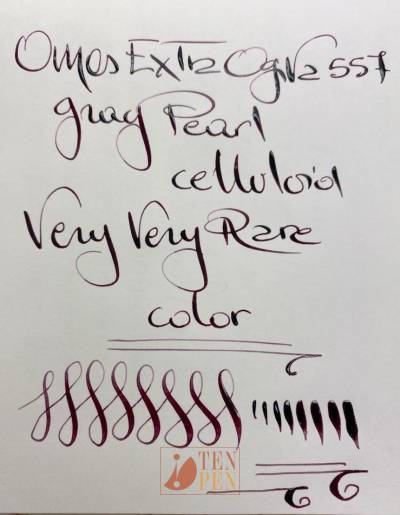 Omas Extra Ogiva 557
gray Pearl
celluloid
Very Very Rare
color
TEN
PEN